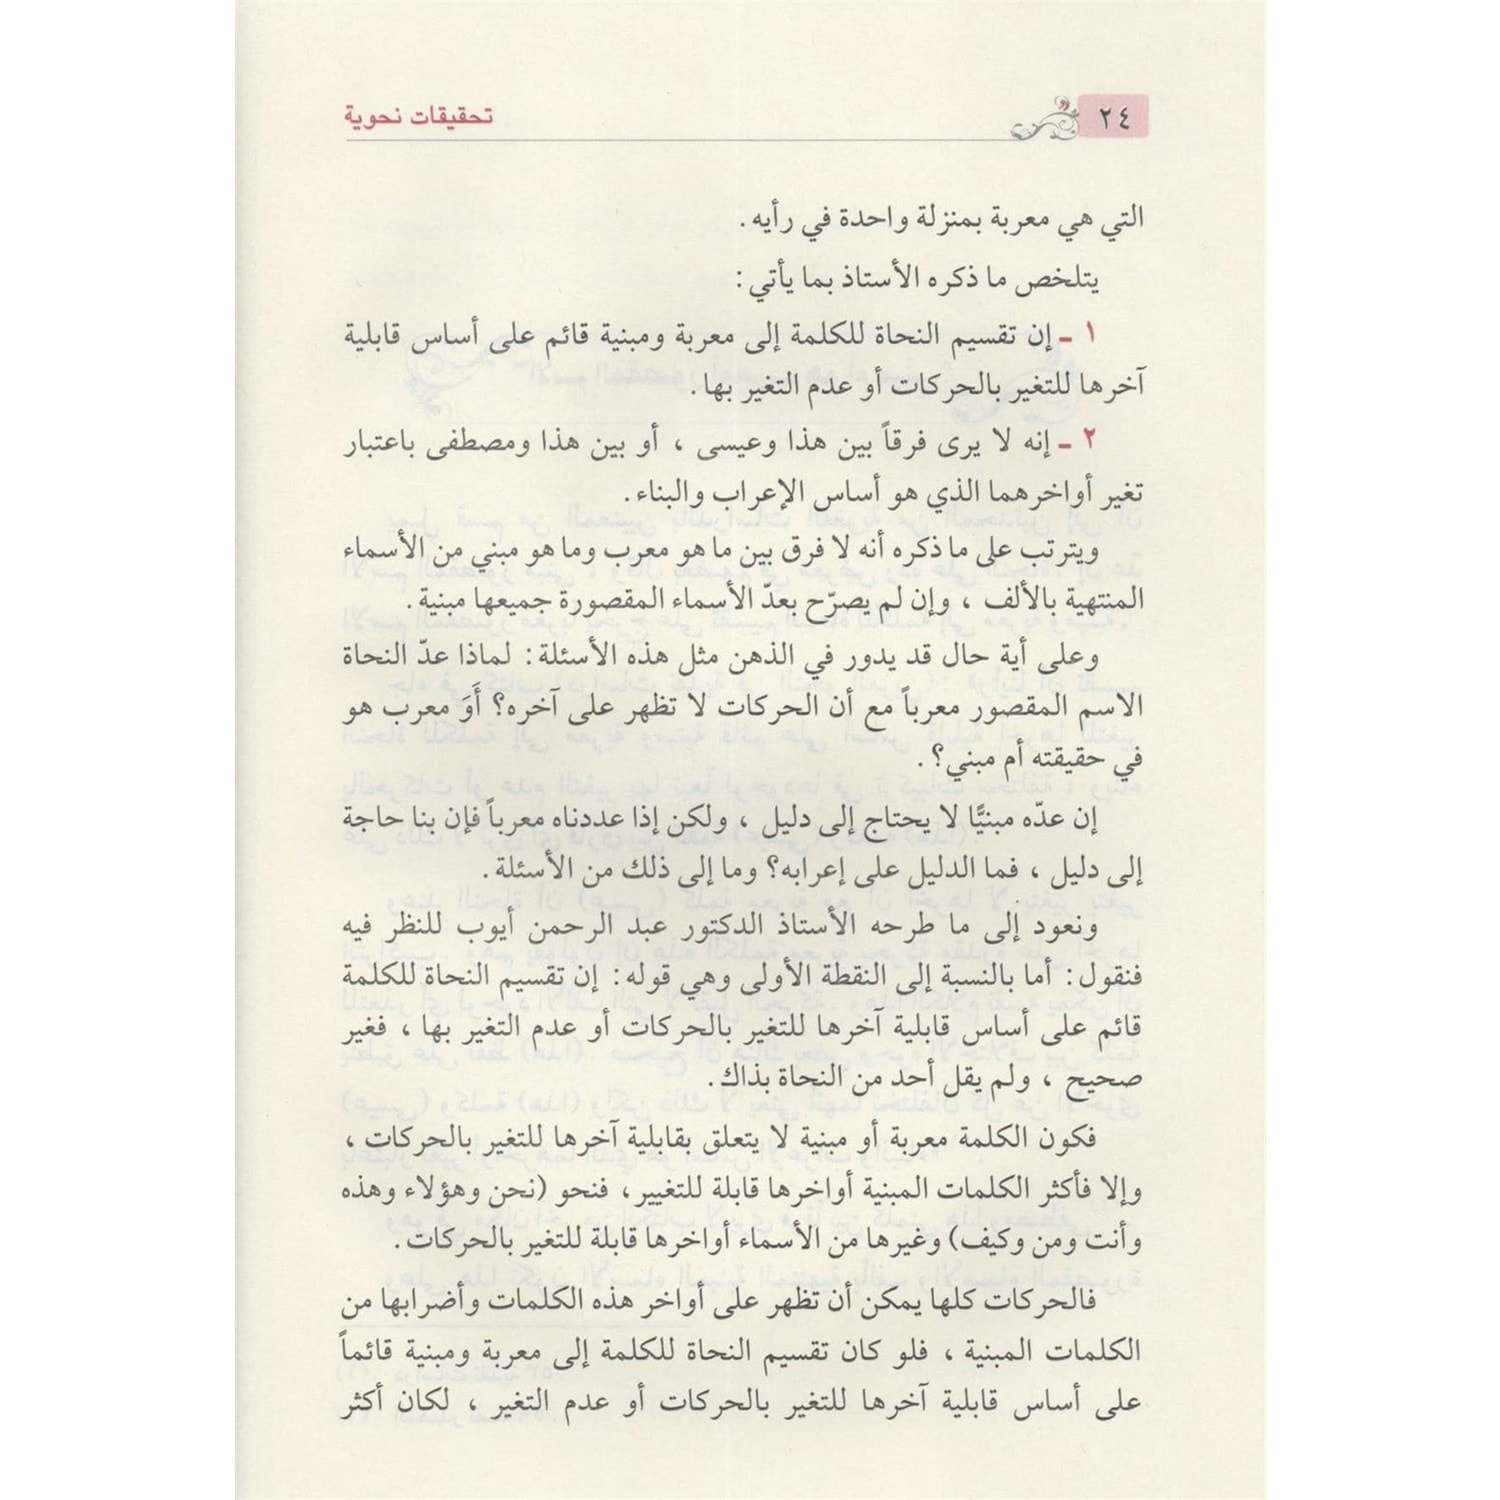 ٢٤
تحقيقات نحوية
التي هي معربة بمنزلة واحدة في رأيه.
يتلخص ما ذكره الأستاذ بما يأتي:
١ - إن تقسيم النحاة للكلمة إلى معربة ومبنية قائم على أساس قابلية
آخرها للتغير بالحركات أو عدم التغير بها.
٢ - إنه لا يرى فرقاً بين هذا وعيسى ، أو بين هذا ومصطفى باعتبار
تغير أواخرهما الذي هو أساس الإعراب والبناء.
ويترتب على ما ذكره أنه لا فرق بين ما هو معرب وما هو مبني من الأسماء
المنتهية بالألف ، وإن لم يصرّح بعدّ الأسماء المقصورة جميعها مبنية.
وعلى أية حال قد يدور في الذهن مثل هذه الأسئلة: لماذا عدّ النحاة
الاسم المقصور معرباً مع أن الحركات لا تظهر على آخره؟ أَوَ معرب هو
في حقيقته أم مبني؟.
إن عدّه مبنيًّا لا يحتاج إلى دليل ، ولكن إذا عددناه معرباً فإن بنا حاجة
إلى دليل ، فما الدليل على إعرابه؟ وما إلى ذلك من الأسئلة.
ونعود إلى ما طرحه الأستاذ الدكتور عبد الرحمن أيوب للنظر فيه
فنقول: أما بالنسبة إلى النقطة الأولى وهي قوله: إن تقسيم النحاة للكلمة
قائم على أساس قابلية آخرها للتغير بالحركات أو عدم التغير بها ، فغير
صحيح ، ولم يقل أحد من النحاة بذاك.
فكون الكلمة معربة أو مبنية لا يتعلق بقابلية آخرها للتغير بالحركات ،
وإلا فأكثر الكلمات المبنية أواخرها قابلة للتغيير، فنحو (نحن وهؤلاء وهذه
وأنت ومن وكيف) وغيرها من الأسماء أواخرها قابلة للتغير بالحركات.
فالحركات كلها يمكن أن تظهر على أواخر هذه الكلمات وأضرابها من
الكلمات المبنية ، فلو كان تقسيم النحاة للكلمة إلى معربة ومبنية قائماً
على أساس قابلية آخرها للتغير بالحركات أو عدم التغير ، لكان أكثر